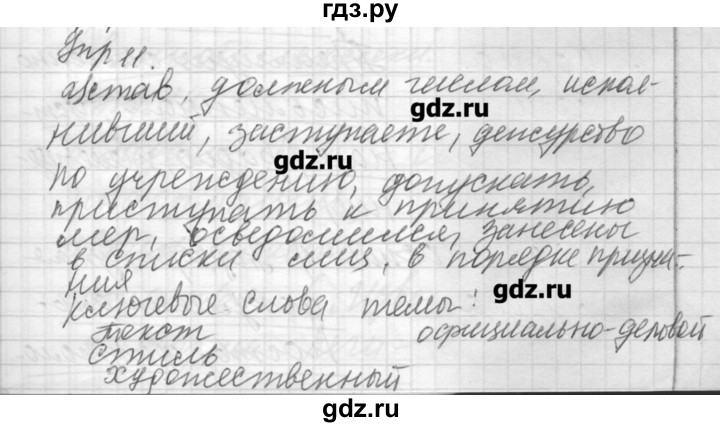 гдз.ру
Упр 11.
устав, должным числом, испол-
gdz.ru
нивший, заступаете, дежурство
gdz.ru
по учреждению, допускать,
приступать к принятию
мер, осведомился, занесены
в списки лиц, в порядке призна-
ния
gdz.ru
ключевые слова темы:
текст официально-деловой
стиль
художественный
gdz.ru